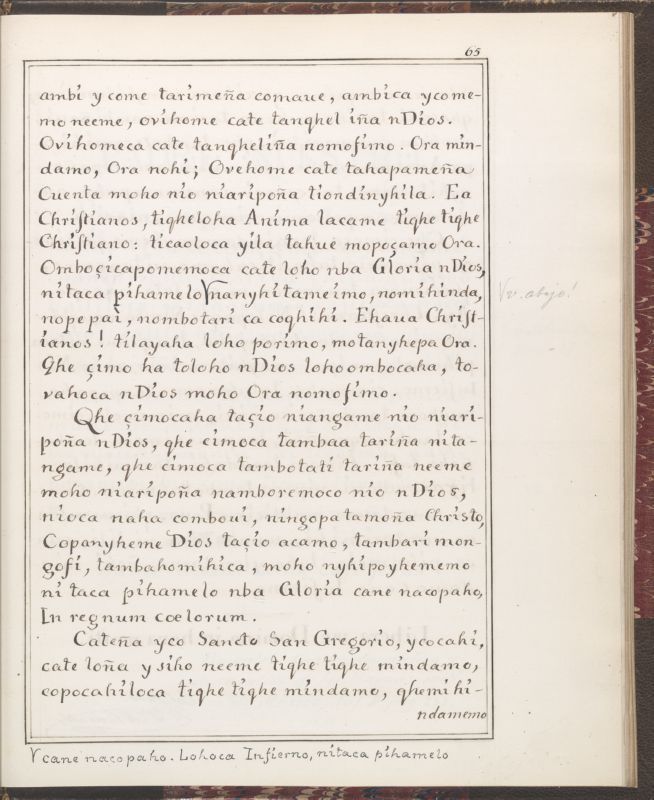 65
ambi y come tarimeña comaue, ambica ycome-
mo neeme, ovihome cate tanqhel iña nDios.
Ovihomeca cate tanqheliña nomofimo. Ora min-
damo, Ora nohi; Ovehome cate tahapameña
Cuenta moho nio niaripoña tiondinyhila. Ea
Chriſtianos, tiqheloha Anima lacame tiqhe tiqhe
Chriſtiano: ticaoloca yila tahue mopoçamo Ora.
Omboçicapomemoca cate loho nba Gloria nDios,
ni taca pihamelo Ѵnanyhitameimo, nomihinda,
nope pai, nombotari ca coqhihi. Ehaua Chriſt-
ianos! tilayaha loho porimo, motanyhepa Ora.
Qhe çimo ha toloho nDios lohoombocaha, to-
vahoca nDios moho Ora nomofimo.
Qhe çimocaha taçio niangame nio niari-
poña nDios, qhe cimoca tambaa tariña nita-
ngame, qhe cimoca tambotati tariña neeme
moho niaripoña namboremoco nio nDios,
nioca naha comboui, ningopatamoña Christo,
Copanyheme Dios taçio acamo, tambari mon-
gofi, tambahomihica, moho nyhipoyhememo
ni taca pihamelo nba Gloria cane nacopaho,
In regnum cœlorum.
Cateña yco Sancto San Gregorio, ycocahi,
cate loña y siho neeme tiqhe tiqhe mindamo,
copocahiloca tiqhe tiqhe mindamo, qhemihi-
ndamemo
Ѵ v. abajo!
Ѵ cane nacopaho. Lohoca Infierno, nitaca pihamelo